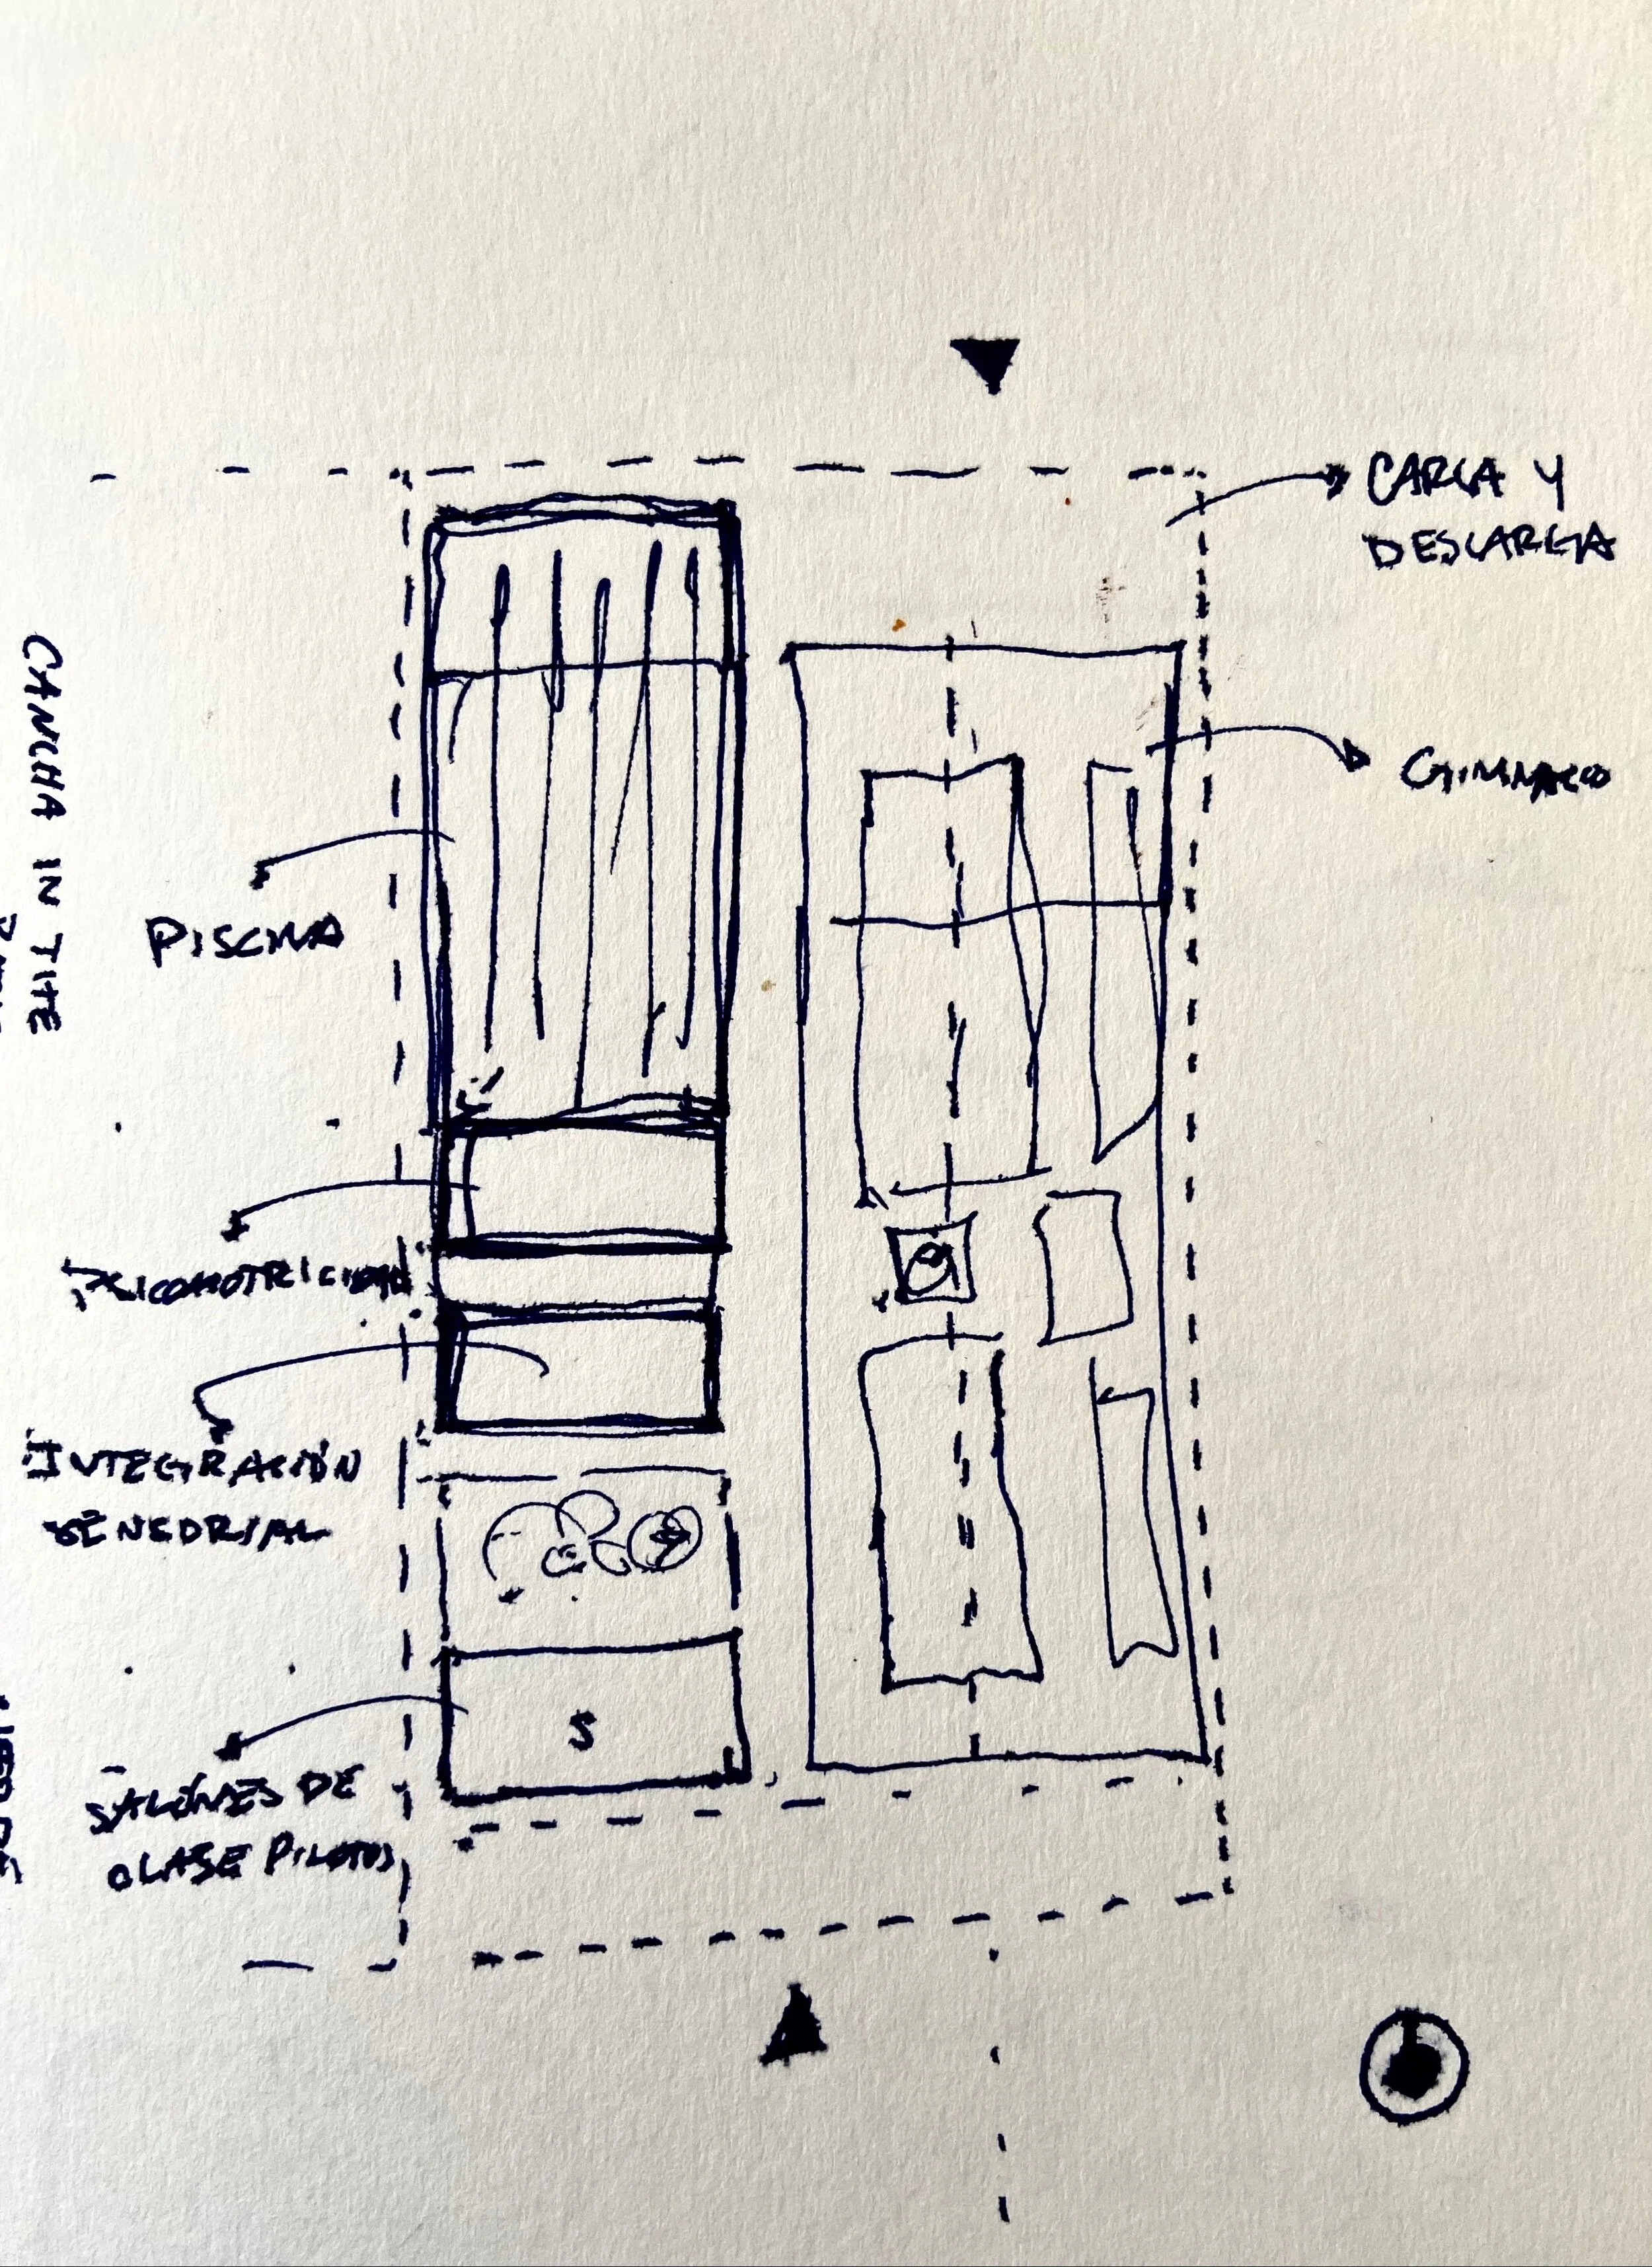 CARGA Y
DESCARGA
GIMNASIO
CANCHA IN TITE
PISCINA
PSICOMOTRICIDAD
INTEGRACIÓN
SENSORIAL
S
SALONES DE
CLASE PILOTOS